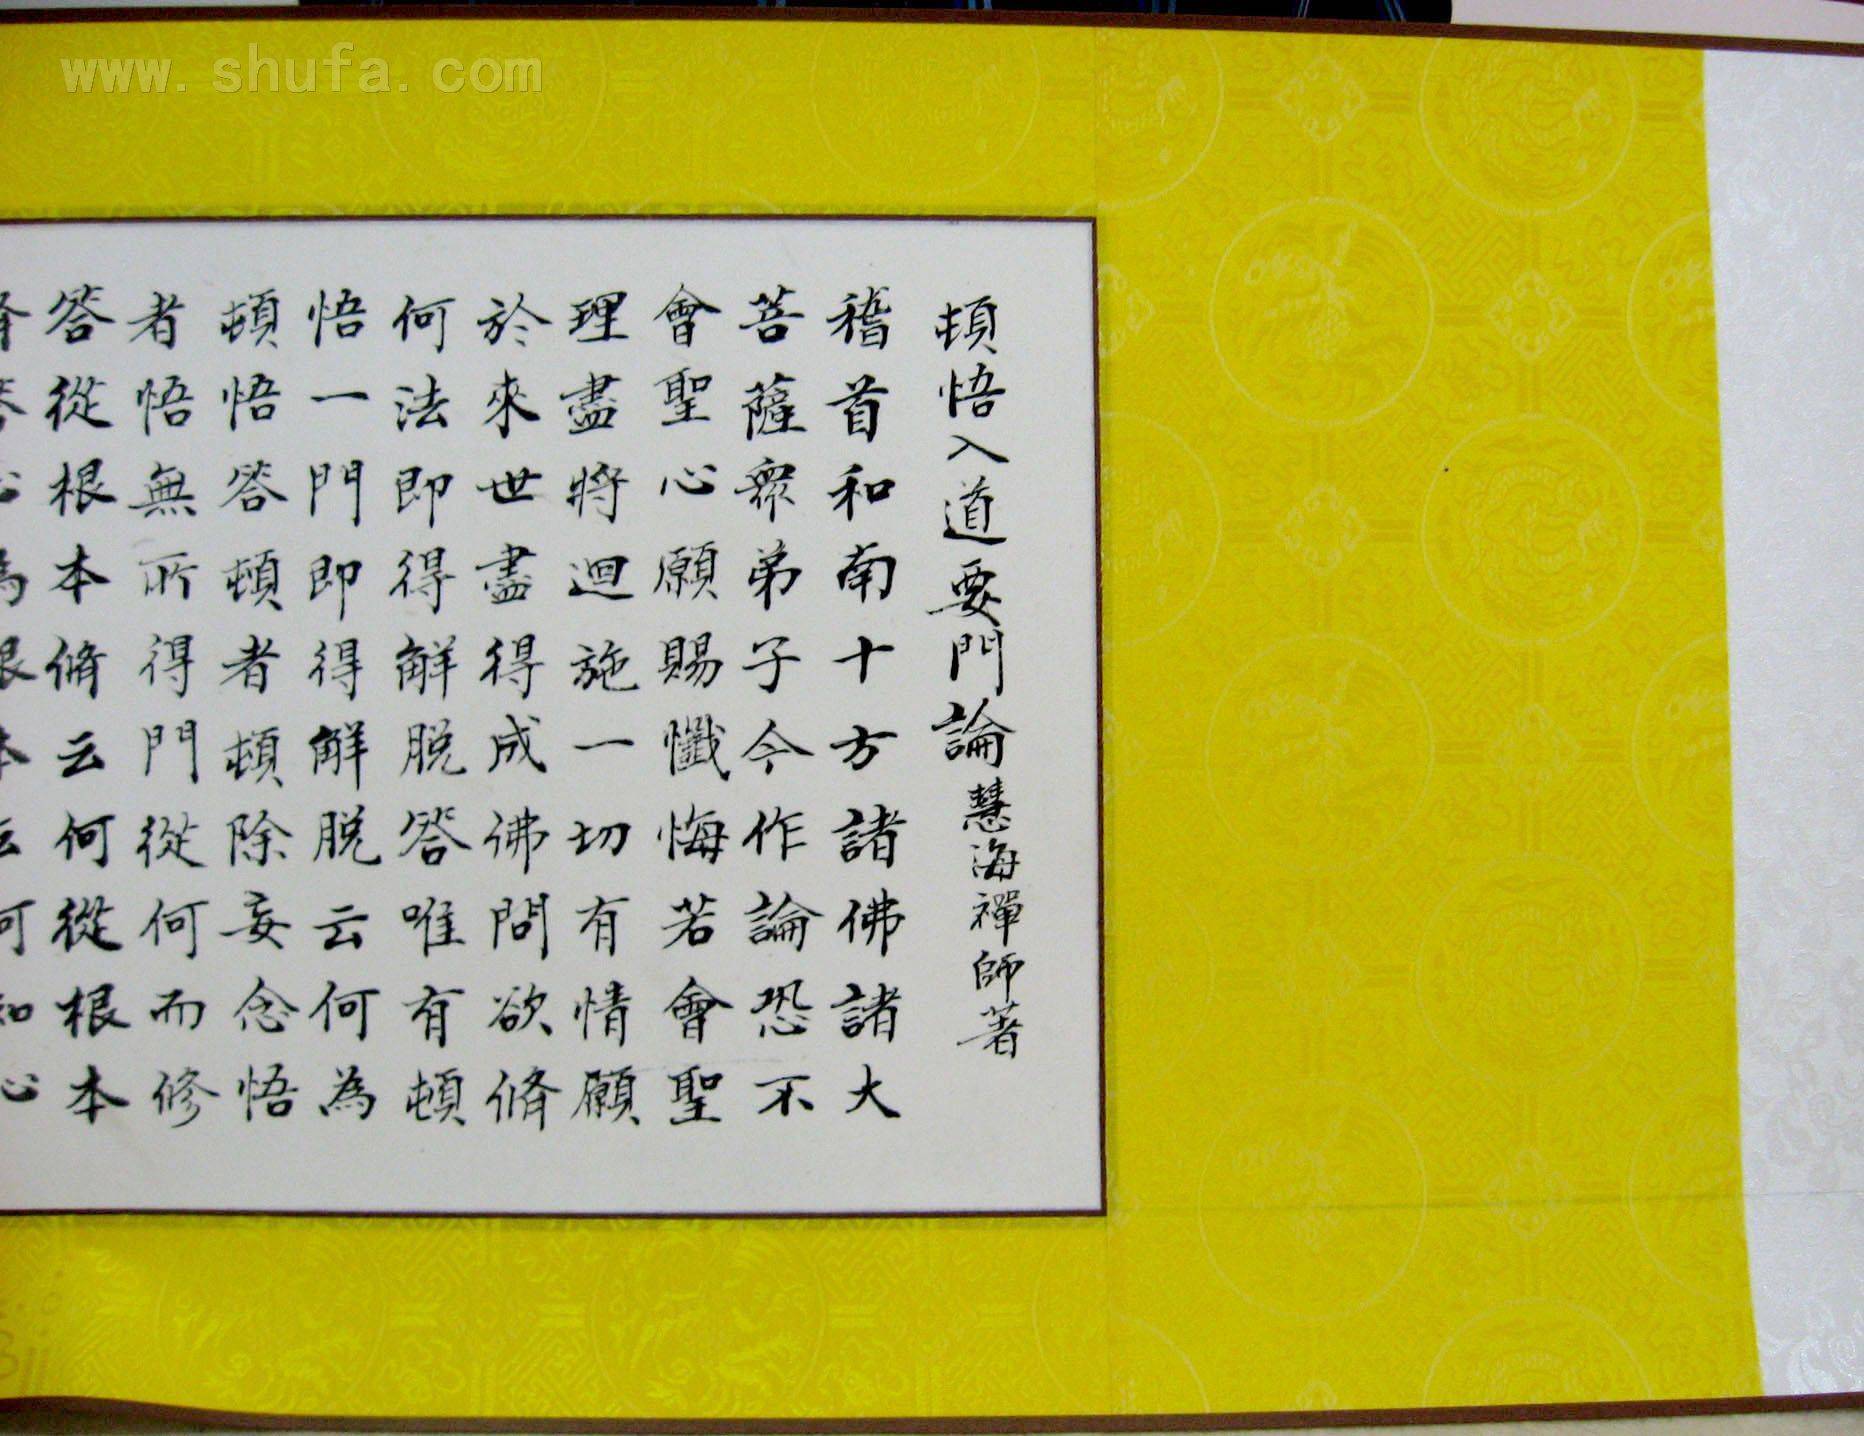 www.shufa.com
頓悟入道要門論慧海禪師著
稽首和南十方諸佛諸大
菩薩衆弟子今作論恐不
會聖心願賜懺悔若會聖
理盡將迴施一切有情願
於來世盡得成佛問欲脩
何法即得解脫答唯有頓
悟一門即得解脫云何為
頓悟答頓者頓除妄念悟
者悟無所得門從何而修
答從根本脩云何從根本